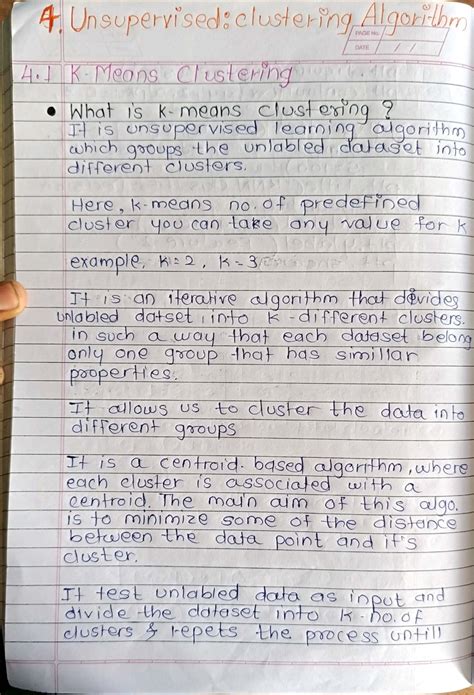 4. Unsupervised: clustering Algorithm
PAGE No.
DATE / /
4.1 K-Means Clustering
• What is k-means clustering ?
It is unsupervised learning algorithm
which groups the unlabled dataset into
different clusters.
Here, k-means no. of predefined
cluster you can take any value for k
example, k=2, k=3
It is an iterative algorithm that devides
unlabled datset into k-different clusters.
in such a way that each dataset belong
only one group that has simillar
properties.
It allows us to cluster the data into
different groups
It is a centroid-based algorithm, where
each cluster is associated with a
centroid. The main aim of this algo.
is to minimize some of the distance
between the data point and it's
cluster.
It test unlabled data as input and
divide the dataset into k-no. of
clusters & repets the process untill